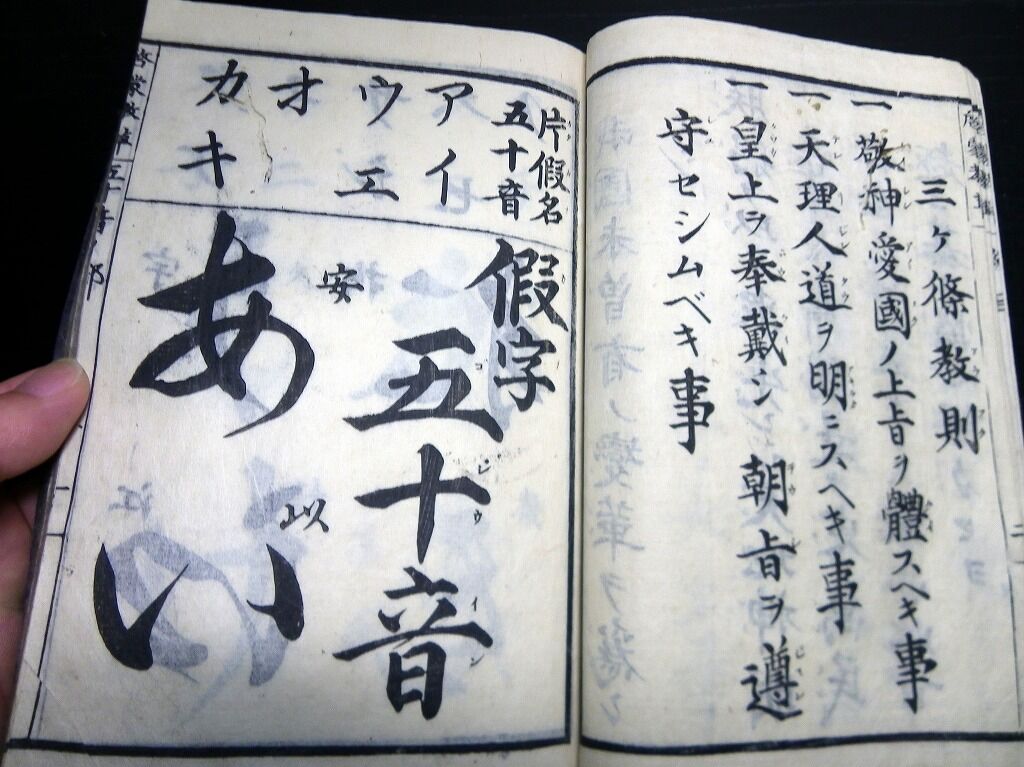 三ヶ條教則
一敬神愛國ノ上旨ヲ體スヘキ事
一天理人道ヲ明ニスヘキ事
一皇上ヲ奉戴シ朝旨ヲ遵
守セシムベキ事
片假名
五十音
アイ
ウエ
オ
カキ
假字
五十音
安
あ
以
い